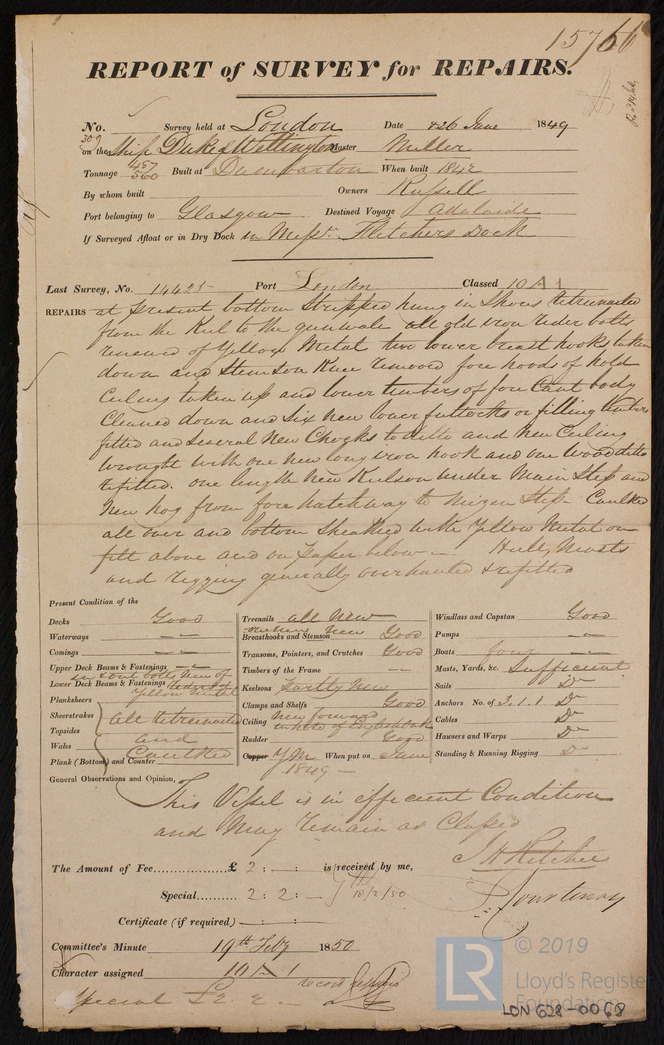 15766
REPORT of SURVEY for REPAIRS.
No. 309 Survey held at London Date 26 June 1849
on the Ship Duke of Wellington Master Miller
Tonnage 487 560 Built at Dumbarton When built 1842
By whom built Owners Russell
Port belonging to Glasgow Destined Voyage Adelaide
If Surveyed Afloat or in Dry Dock in Messrs. Fletchers Dock
Last Survey, No. 14425 Port London Classed 10 A 1
REPAIRS at present bottom Stripped hung in Shores Retreenailed
from the Keel to the gunwale all old iron Rider bolts
renewed of Yellow Metal two lower breast hooks taken
down and Stemson Knee removed fore hoods of hold
Ceiling taken up and lower timbers of fore Cant body
Cleaned down and Six New lower futtocks or filling timbers
fitted and Several New Chocks to ditto and New Ceiling
wrought with one new long iron hook and one wood ditto
refitted. one length New Keelson under Main Step and
New hog from fore hatchway to Mizen Step. Caulked
all over and bottom Sheathed with Yellow Metal on
felt above and on paper below — Hull, Masts
and rigging generally overhauled & refitted
Present Condition of the
Decks Good
Waterways — —
Comings — —
Upper Deck Beams & Fastenings — —
Lower Deck Beams & Fastenings
Yellow Metal
Planksheers
Sheerstrakes
Topsides
Wales
Plank (Bottom) and Counter
all Retreenailed
and
Caulked
Treenails all New
Breasthooks and Stemson New Good
Transoms, Pointers, and Crutches Good
Timbers of the Frame — —
Keelsons Partly New
Clamps and Shelfs Good
Ceiling New forward
Rudder Good
Copper Y.M. When put on June
1849 —
Windlass and Capstan Good
Pumps — —
Boats four — —
Masts, Yards, &c. Sufficient
Sails Do
Anchors No. of 3.1.1 Do
Cables Do
Hausers and Warps Do
Standing & Running Rigging Do
General Observations and Opinion,
This Vessel is in efficient Condition
and May remain as Classed
The Amount of Fee.................. £ 2 : — : is received by me,
Special.......... 2 : 2 : —
18/2/50
Certificate (if required) — : — :
J H Ritchie
Courtenay
Committee's Minute 19th Feby 1850
Character assigned 10 A 1
Special
LR
© 2019
Lloyd's Register
Foundation
LON 628-0068